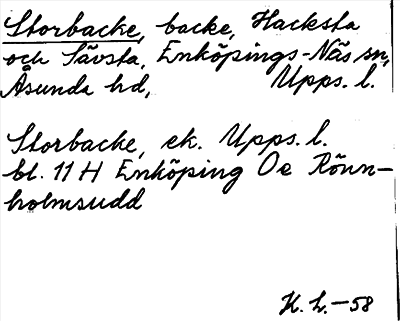 Storbacke, backe, Hacksta
och Sävsta, Enköpings-Näs sn,
Åsunda hd, Upps. l.
Storbacke, ek. Upps. l.
bl. 11 H Enköping Oe Rönn-
holmsudd
K. L. -58